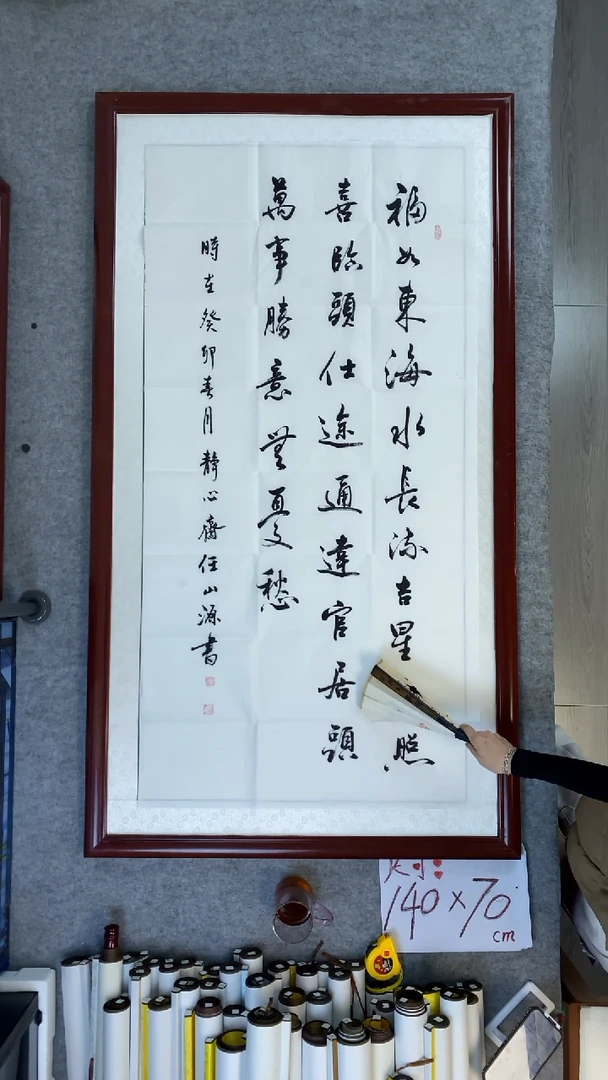 福如東海水長流吉星照
喜臨頭仕途通達官居頭
萬事勝意無憂愁
時在癸卯春月靜心齋任山源書
140×70
cm